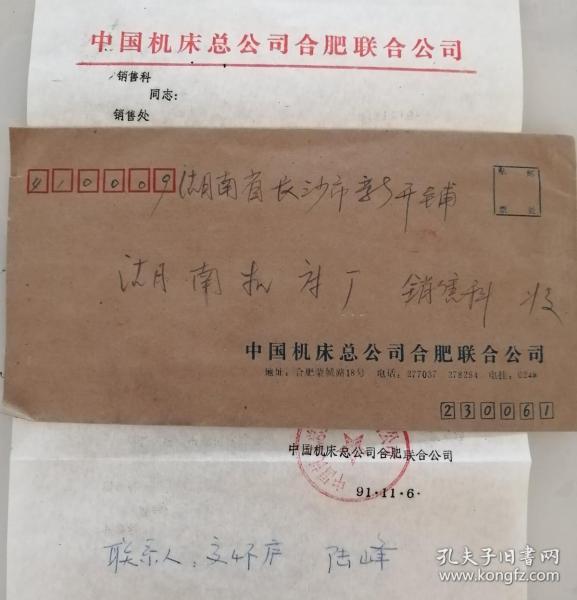 中国机床总公司合肥联合公司
销售科
同志:
销售处
410009
湖南省长沙市新开铺
湖南机床厂 销售科 收
贴 邮
票 处
中国机床总公司合肥联合公司
地址: 合肥荣城路18号 电话: 277037 378254 电挂:
230061
中国机床总公司合肥联合公司
91·11·6·
联系人: 文怀 陆峰
孔夫子旧书网
www.kongfz.com